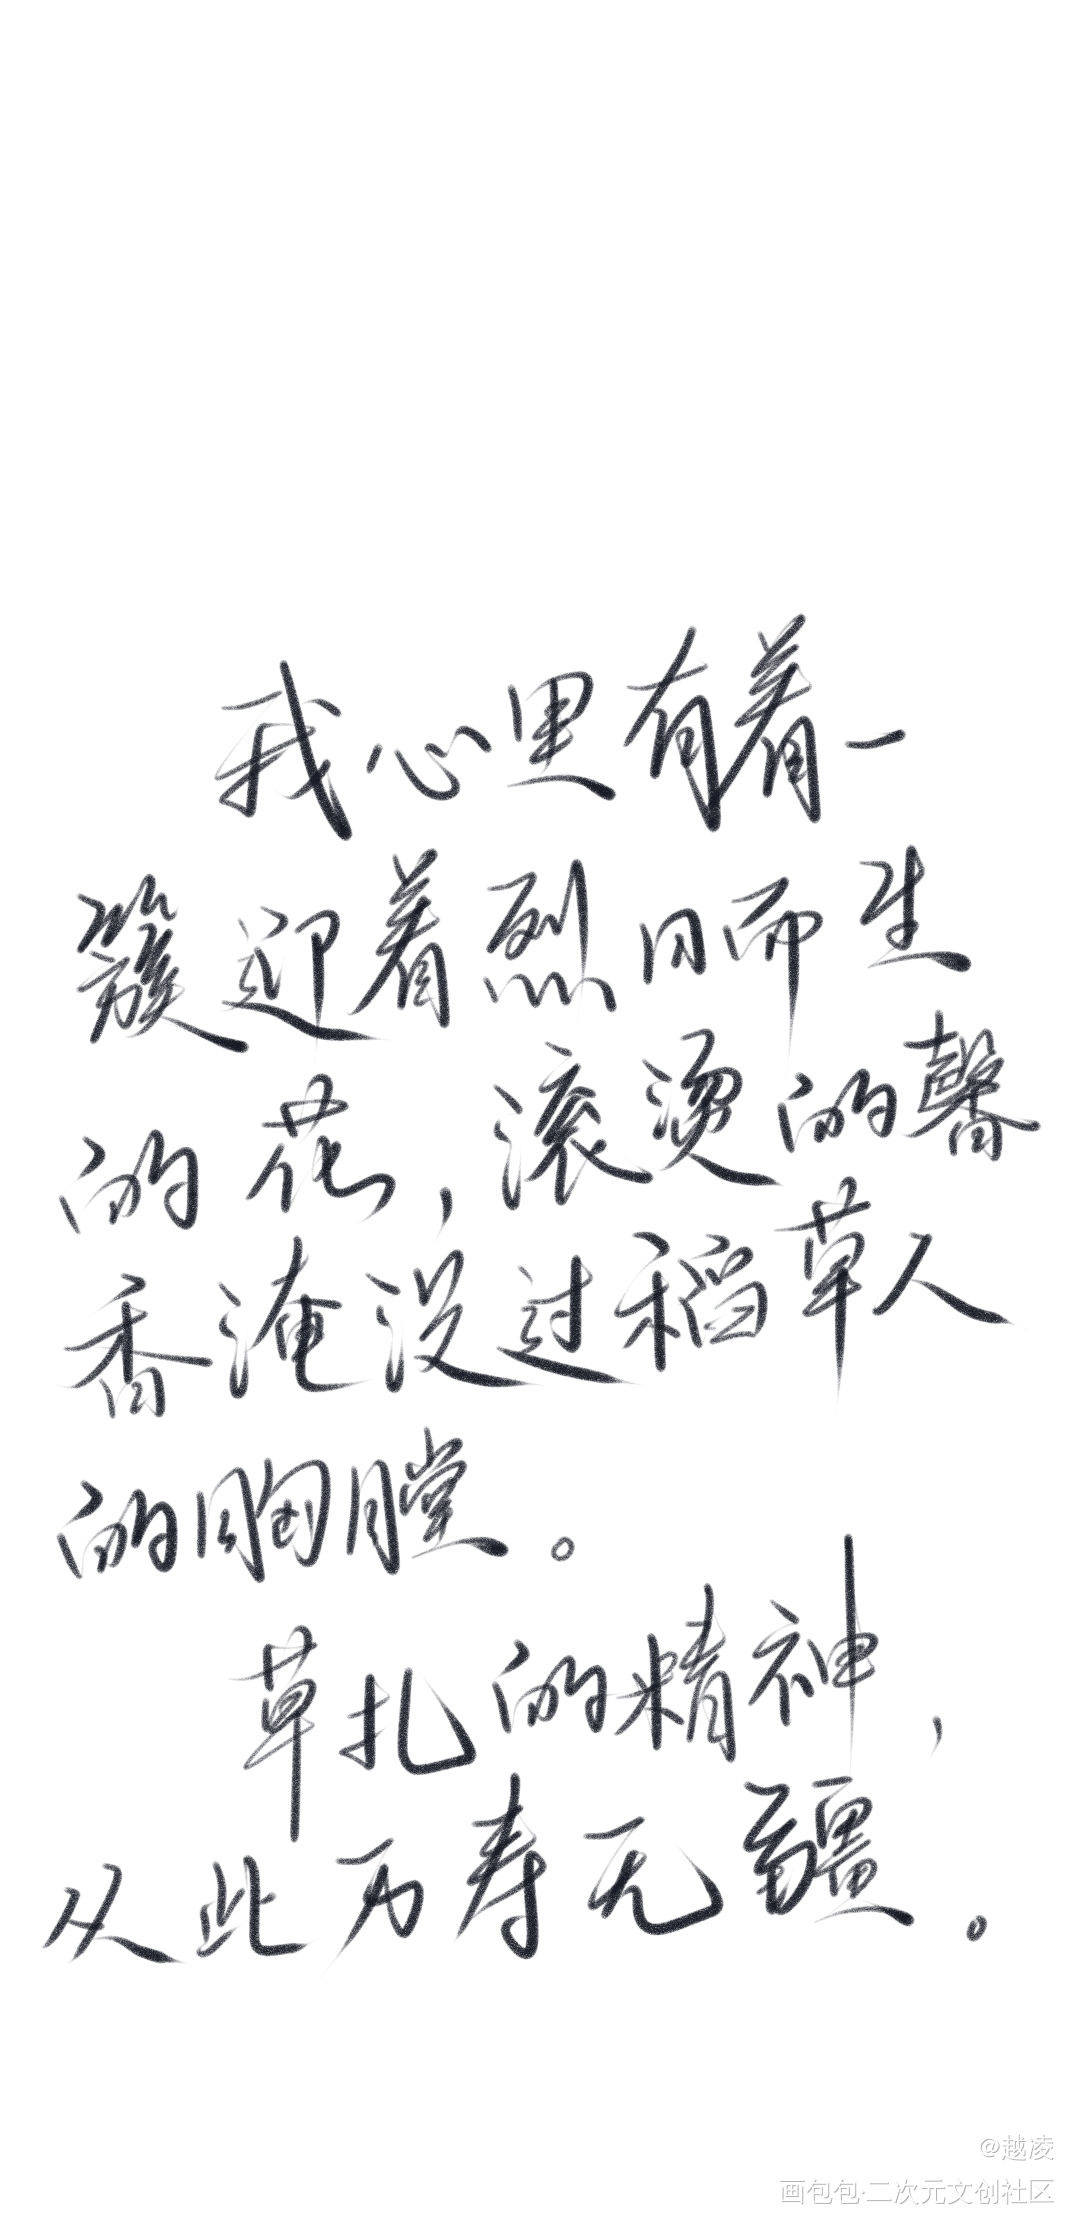 我心里有着一
簇迎着烈日而生
的花，滚烫的馨
香淹没过稻草人
的胸膛。
草扎的精神，
从此万寿无疆。
@越凌
画包包·二次元文创社区